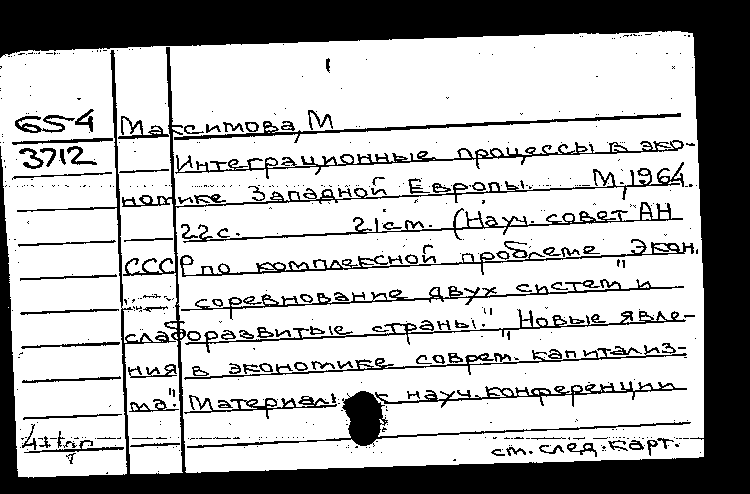 65-4 Максимова, М
3712 Интеграционные процессы к эко-
номике Западной Европы. М, 1964.
22с. 21см. (Науч. совет АН
СССР по комплексной проблеме „Экон.
соревнование двух систем и
слаборазвитые страны." „Новые явле-
ния в экономике соврем. капитализ-
ма". Материалы к науч. конференции
ст. след. карт.